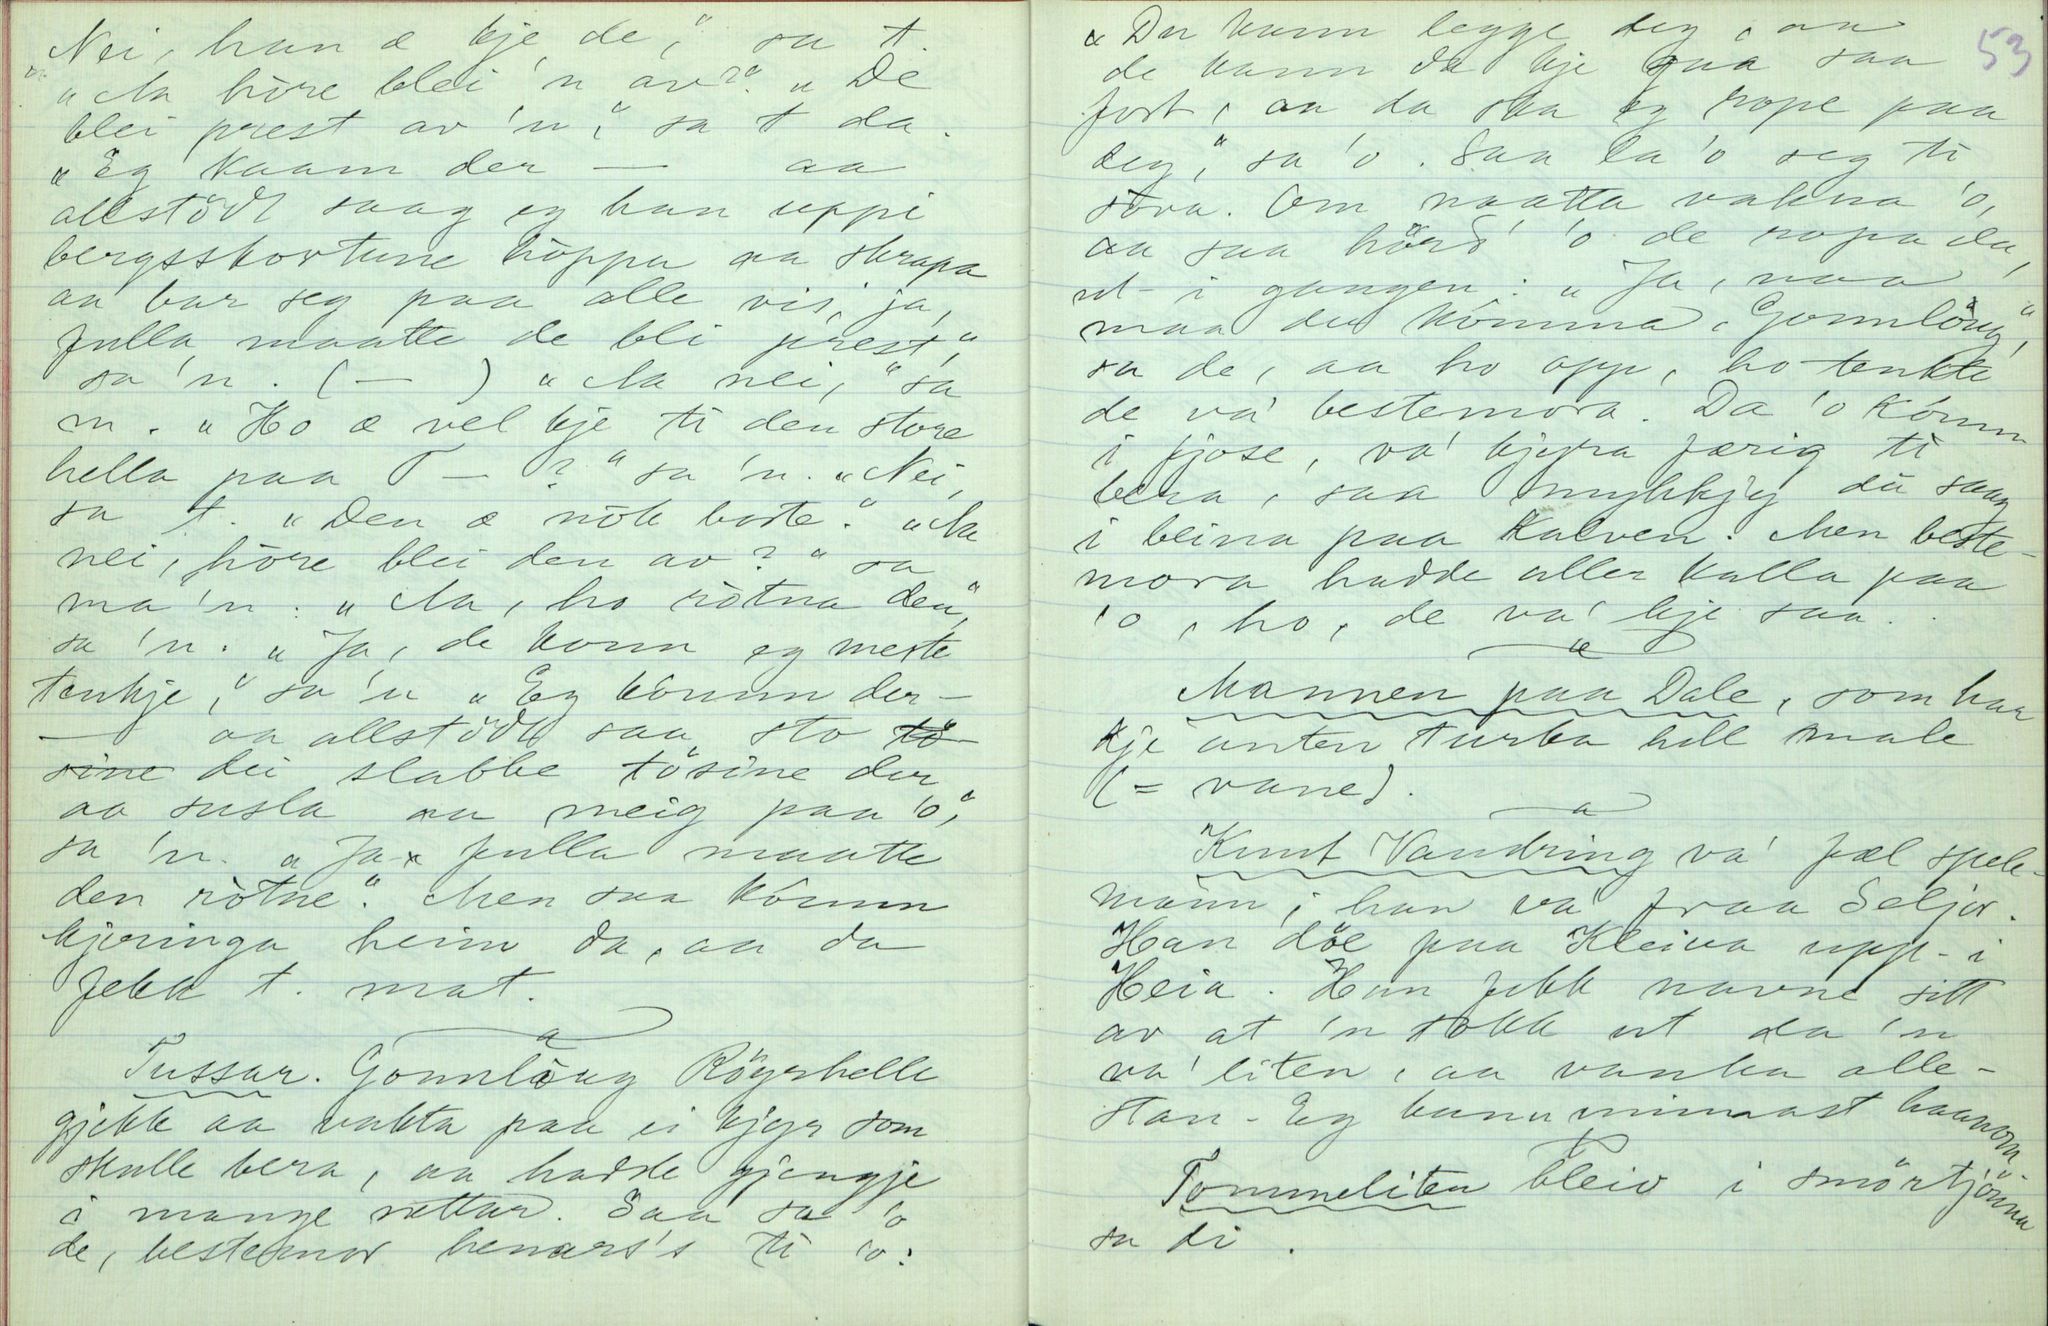 Nei, han æ kje de," sa t.
"Aa hòre blei 'n av?" "De
blei prest av 'n," sa t da.
"Eg kaam der — aa
allstödt saag eg han uppi
bergsskortune hòppa aa skrapa
aa bar seg paa alle vis, ja,
fulla maatte de bli prest",
sa 'n. (— ) "Aa nei," sa
m. "Ho æ vel kje ti den store
hella paa T— ?" sa 'n. "Nei,
sa t. "Den æ nòk borte." "Aa
nei, hòre blei den av?" sa
ma'n. "Aa, ho ròtna den",
sa 'n. "Ja, de konn eg meste
tenkje," sa 'n "Eg kòmm der—
— aa allstödt saa sto tö-
sine dei slabbe tösine der
aa susla aa meig paa 'o",
sa 'n. "Ja fulla maatte
den ròtne". Men saa kòmm
kjeringa heim da, aa da
fekk t. mat.
Tussar. Gonnlöug Röyrhelle
gjekk aa vakta paa ei kjyr som
skulle bera, aa hadde gjengje
i mange nettar. Saa sa 'o
de, bestemor hennars's ti 'o:
53
"Du kann legge deg, aa
de kann da kje gaa saa
fort, aa da ska eg rope paa
deg," sa 'o. Saa la 'o seg ti
sòva. Om naatta vakna 'o,
aa saa hörd' 'o de ropa da,
ut- i gangen: "Ja, naa
maa du kòmma, Gonnlöug",
sa de, aa ho opp, ho tenkte
de va' bestemora. Da 'o kòmm
i fjose, va' kjyra færig ti
bera, saa smykkjy du saag
i beina paa kalven. Men beste-
mora hadde aller kalla paa
'o, ho, de va' kje saa.
Mannen paa Dale, som haa
kje anten turka hell male
(= vane).
Knut Vandring va' fæl spele-
mann; han va' fraa Seljor.
Han döe paa Kleiva upp- i
Heia. Han fekk navne sitt
av at 'n stakk ut da 'n
va' liten, aa vanka alle-
stan - Eg kann minnast haanom.
Tommeliten bleiv i smörtjönna
sa di.